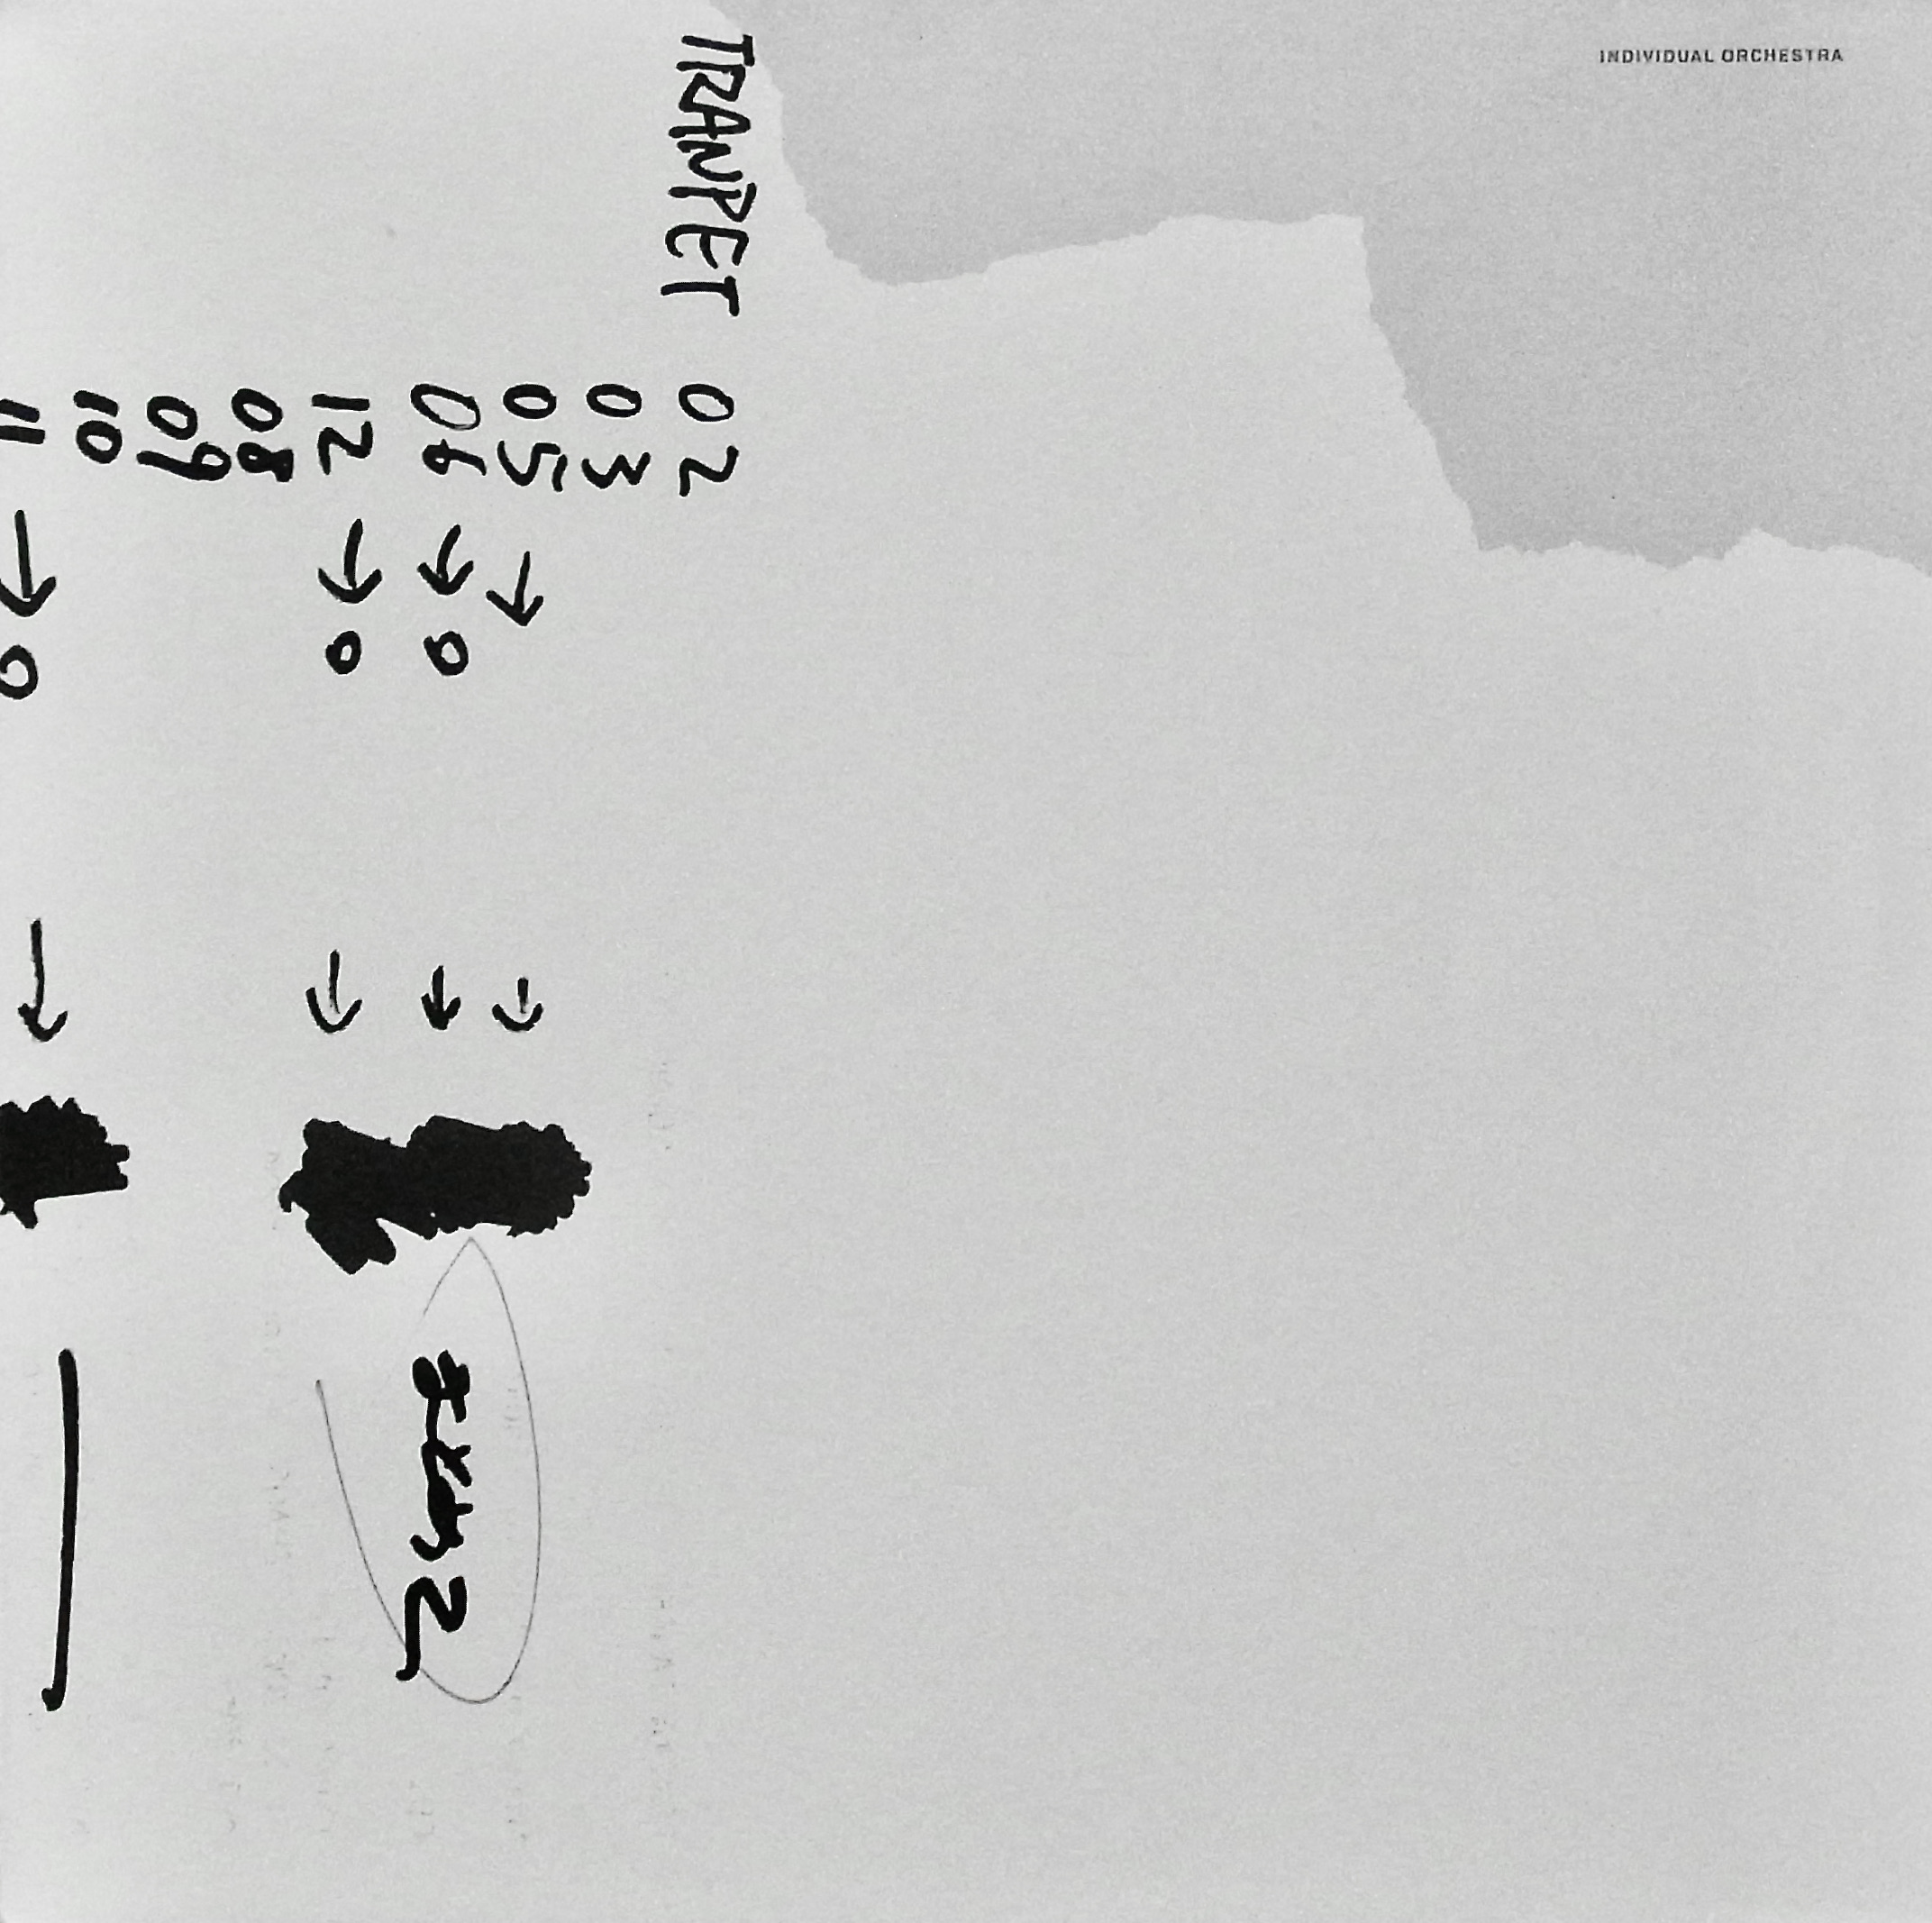 INDIVIDUAL ORCHESTRA
TRANPET
02
03
05 →
06 → 0
12 → 0
08
09
10
11 → 0